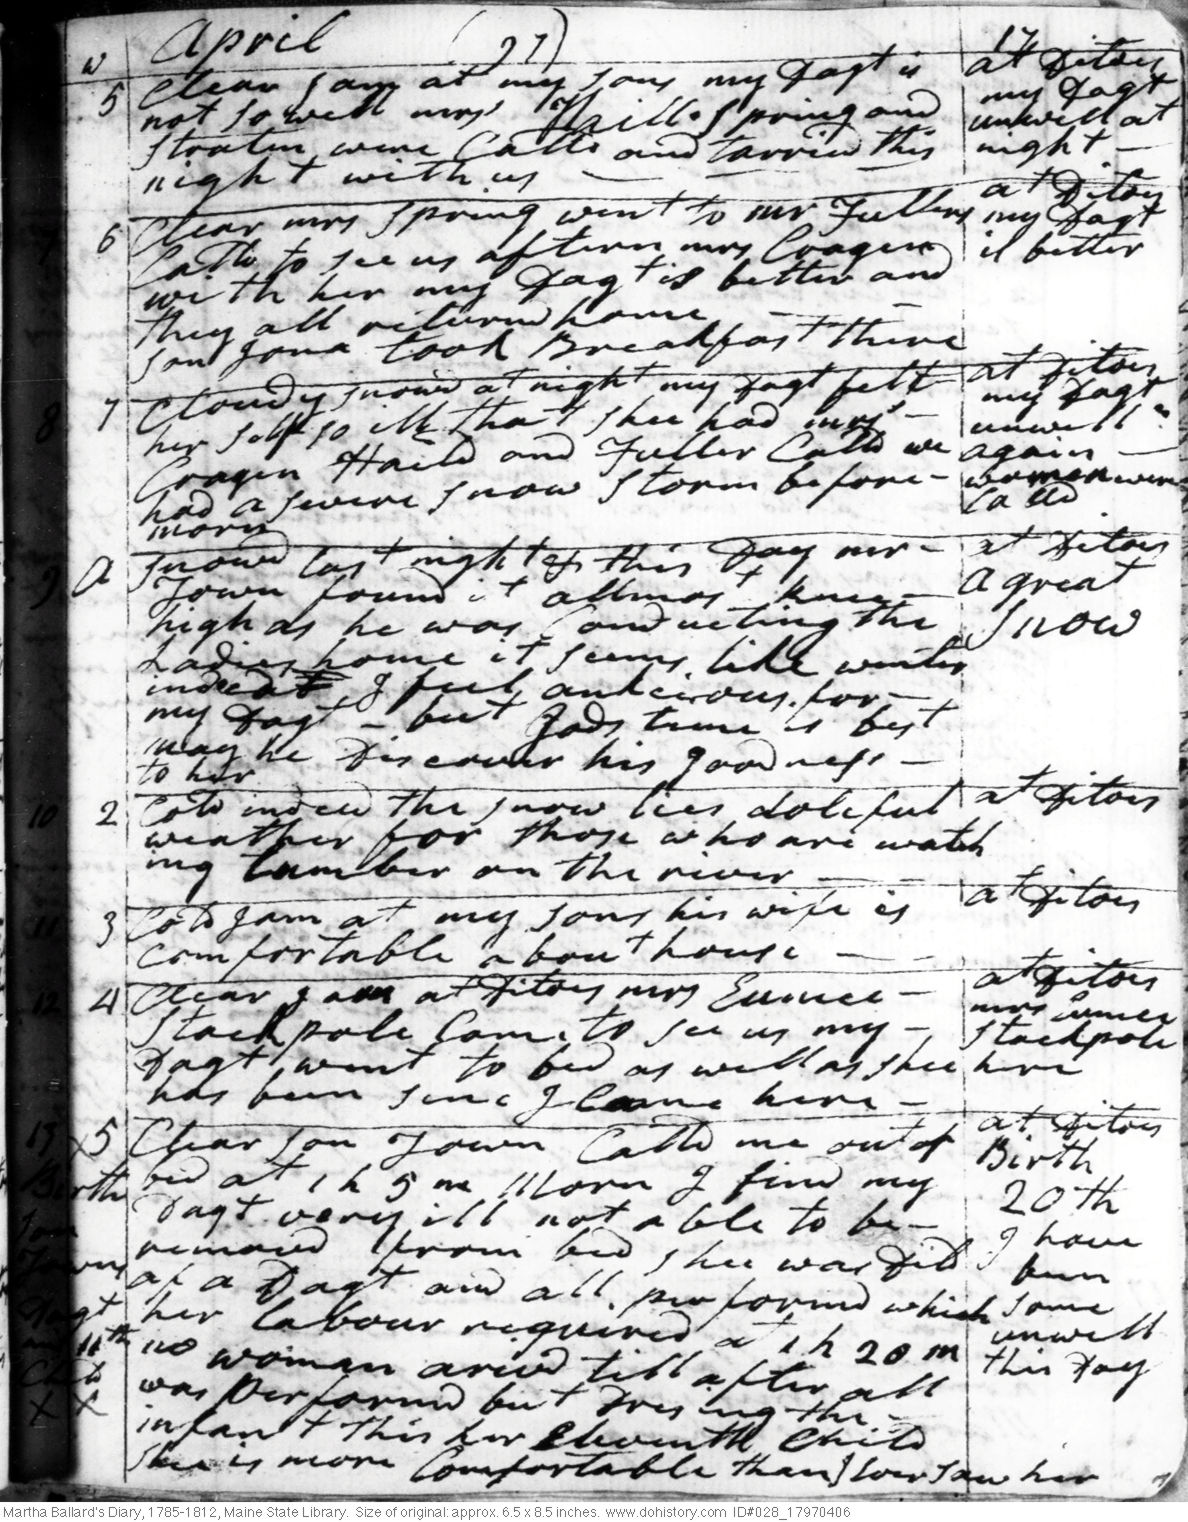 April (27) 17
w
5 Clear I am at my sons my Dagt is
not so well mrs Spring and
were Calld and tarried this
night with us
at Ditoes
my Dagt
unwell at
night
6 Clear mrs Spring went to mr Fullers
Calld to see us aftern mrs Cragen
with her my Dagt is better and
they all returnd home
son Jona took Breakfast there
at Ditoes
my Dagt
is better
8 7 Cloudy snowd at night my Dagt felt
her self so ill that shee had mrs
Cragen Haild and Fuller Calld we
had a severe snow storm before
morn
at Ditoes
my Dagt
unwell
again
women were
Calld
9 A snowd last night & this Day mr
Town found it allmost knee
high as he was Conducting the
Ladies home it seems like winter
indeed I feel ankcious for
my Dagt - but Gods time is best
may he Discover his goodness
to her
at Ditoes
A great
Snow
10 2 Cold indeed the snow lies doleful
weather for those who are watch
ing lumber on the river
at Ditoes
11 3 Cold I am at my sons his wife is
comfortable about house
at Ditoes
12 4 Clear I am at Ditoes mrs Eunice
Stackpole Came to see us my
Dagt went to bed as well as shee
has been sinc I Came here
at Ditoes
mrs Eunice
Stackpole
here
13 x 5 Clear son Town Calld me out of
bed at 1 h 5 m Morn I find my
Dagt very ill not able to be
removd from bed shee was Dild
of a Dagt and all performd which
her labour required at 1 h 20 m
no woman arivd till after all
was performd but Dresing the
infant this her Eleventh Child
shee is more Comfortable than I Ever saw her
Birth
Town
Dagt
11th
Child
X X
at Ditoes
Birth
20th
I have
been
some
unwell
this Day
Martha Ballard's Diary, 1785-1812, Maine State Library. Size of original: approx. 6.5 x 8.5 inches. www.dohistory.com ID#028_17970406